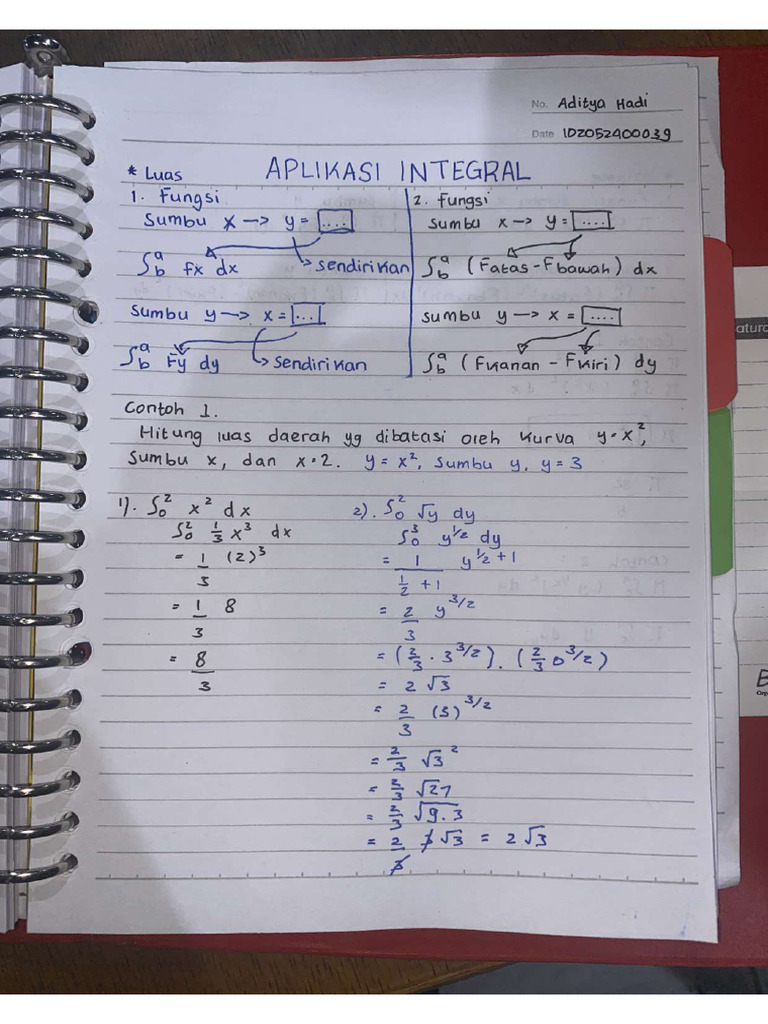 No. Aditya Hadi
Date 102052400039
APLIKASI INTEGRAL
* Luas
1. Fungsi
Sumbu x → y = [....]
∫ᵇᵃ fx dx
Sendirikan
Sumbu y → x = [...]
∫ᵇᵃ Fy dy
Sendirikan
2. Fungsi
Sumbu x → y = [....]
∫ᵇᵃ (Fatas - Fbawah) dx
Sumbu y → x = [....]
∫ᵇᵃ (Fkanan - Fkiri) dy
Contoh 1.
Hitung luas daerah yg dibatasi oleh kurva y = x²,
Sumbu x, dan x = 2. y = x², Sumbu y, y = 3
1). ∫₀² x² dx
∫₀² 1/3 x³ dx
= 1/3 (2)³
= 1/3 8
= 8/3
2). ∫₀² √y dy
∫₀³ y^1/2 dy
= 1/(1/2 + 1) y^1/2 + 1
= 2/3 y^3/2
= (2/3 . 3^3/2) . (2/3 0^3/2)
= 2 √3
= 2/3 (3)^3/2
= 2/3 √3²
= 2/3 √27
= 2/3 √9.3
= 2/3 3√3 = 2√3